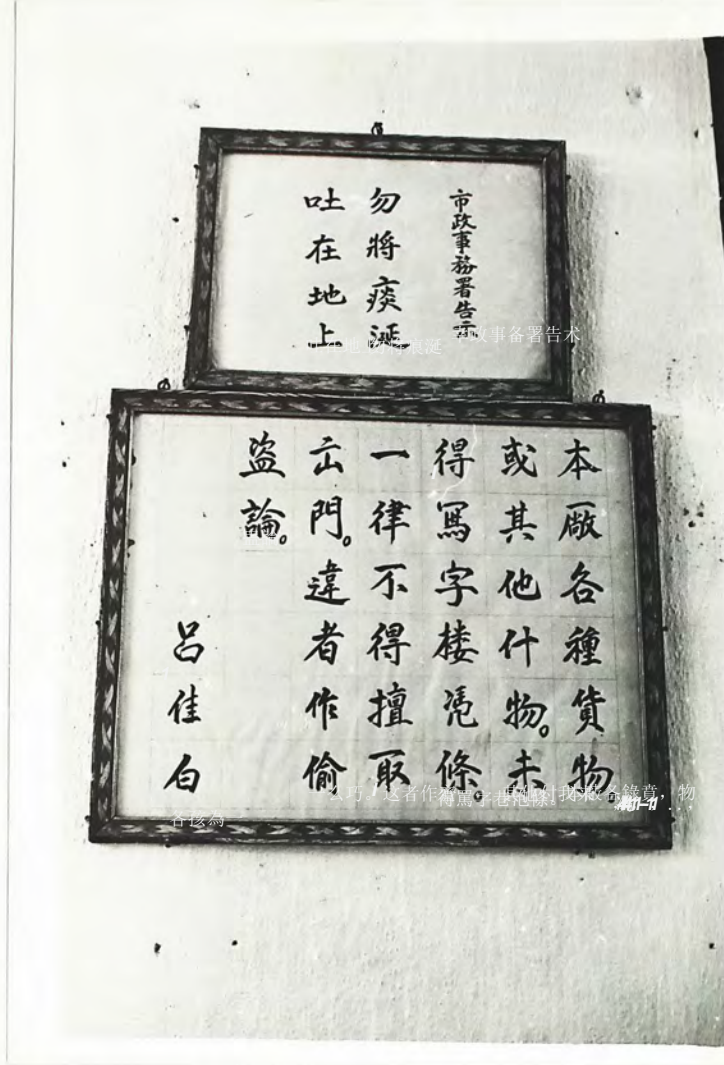 市政事務署告示
勿將痰涎
吐在地上
本厰各種貨物。
或其他什物。未
得寫字楼凴條。
一律不得擅取
出門。違者作偷
盜論。
呂佳白